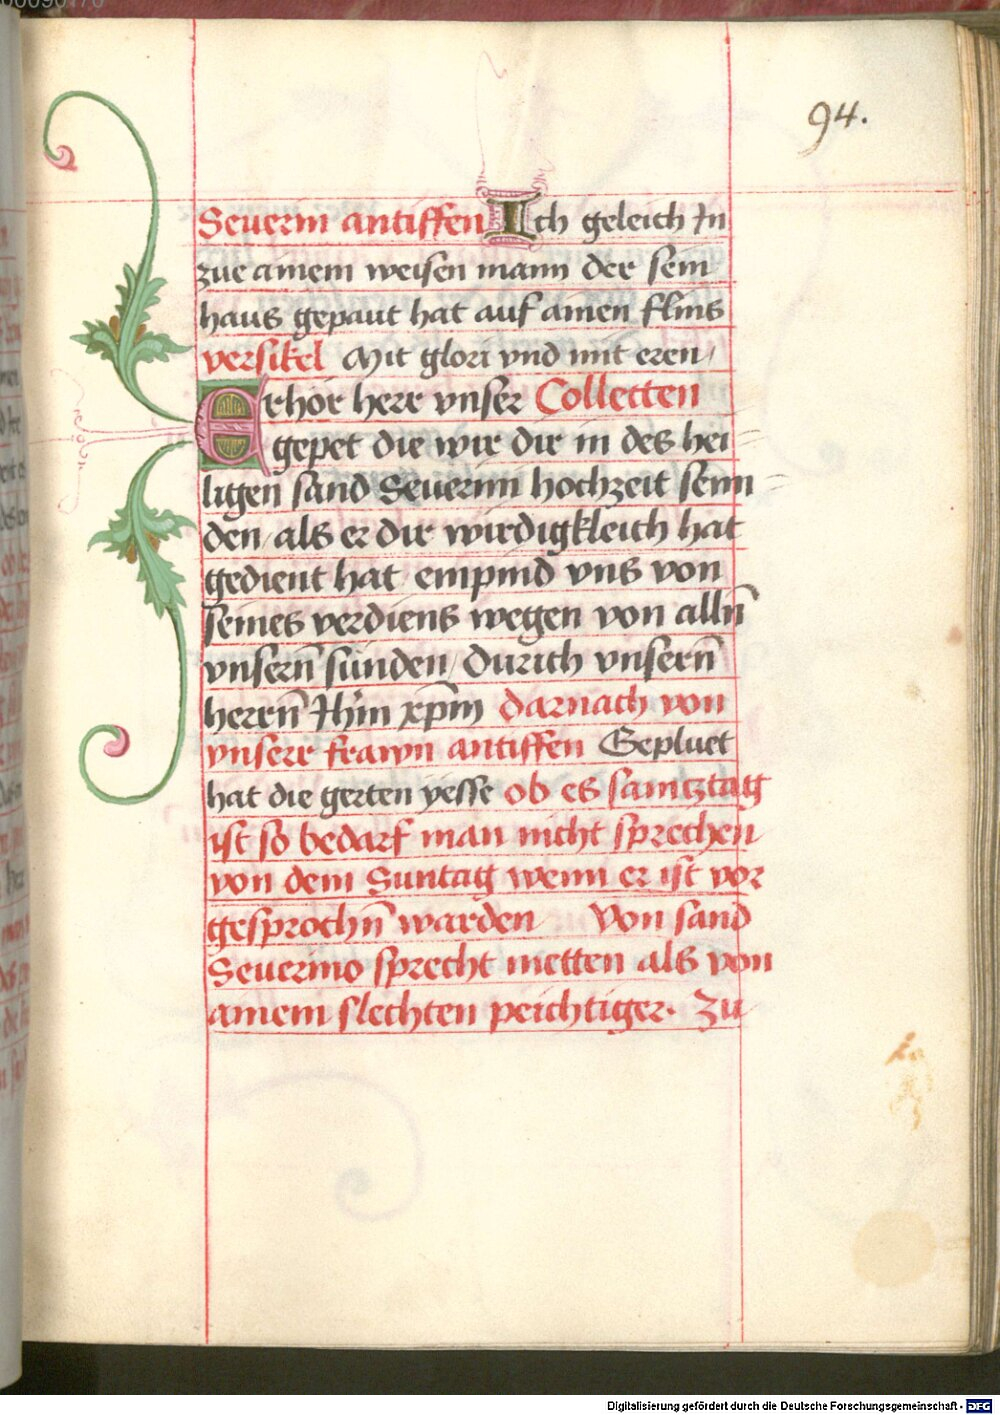 94.
Seuerin antiffen Ich geleich In
zue ainem weisen mann der sein
haus gepaut hat auf ainen flins
versikel Mit glori vnd mit eren /
Erhör herr vnser Colletten
gepet die wir dir in des hei
ligen sand Seuerinn hochzeit senn
den / als er dir wirdigkleich hat
gedient hat empind vns von
seines verdiens wegen von alln̄
vnsern̄ sünden / durich vnsern̄
herrn̄ Ihm̄ xp̄m darnach von
vnsere frawn antiffen Gepluet
hat die gerten yesse ob es samtztag
ist so bedarf man nicht sprechen
von dem Suntag wenn er ist vor
gesprochn̄ warden Von sand
Seuerino sprecht metten als von
ainem slechten peichtiger. Zu
Digitalisierung gefördert durch die Deutsche Forschungsgemeinschaft - DFG